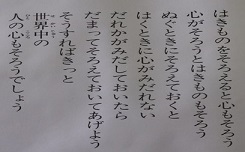 はきものをそろえると心もそろう
心がそろうとはきものもそろう
ぬぐときにそろえておくと
はくときに心がみだれない
だれかがみだしておいたら
だまってそろえておいてあげよう
そうすればきっと
世界中の
人の心もそろうでしょう